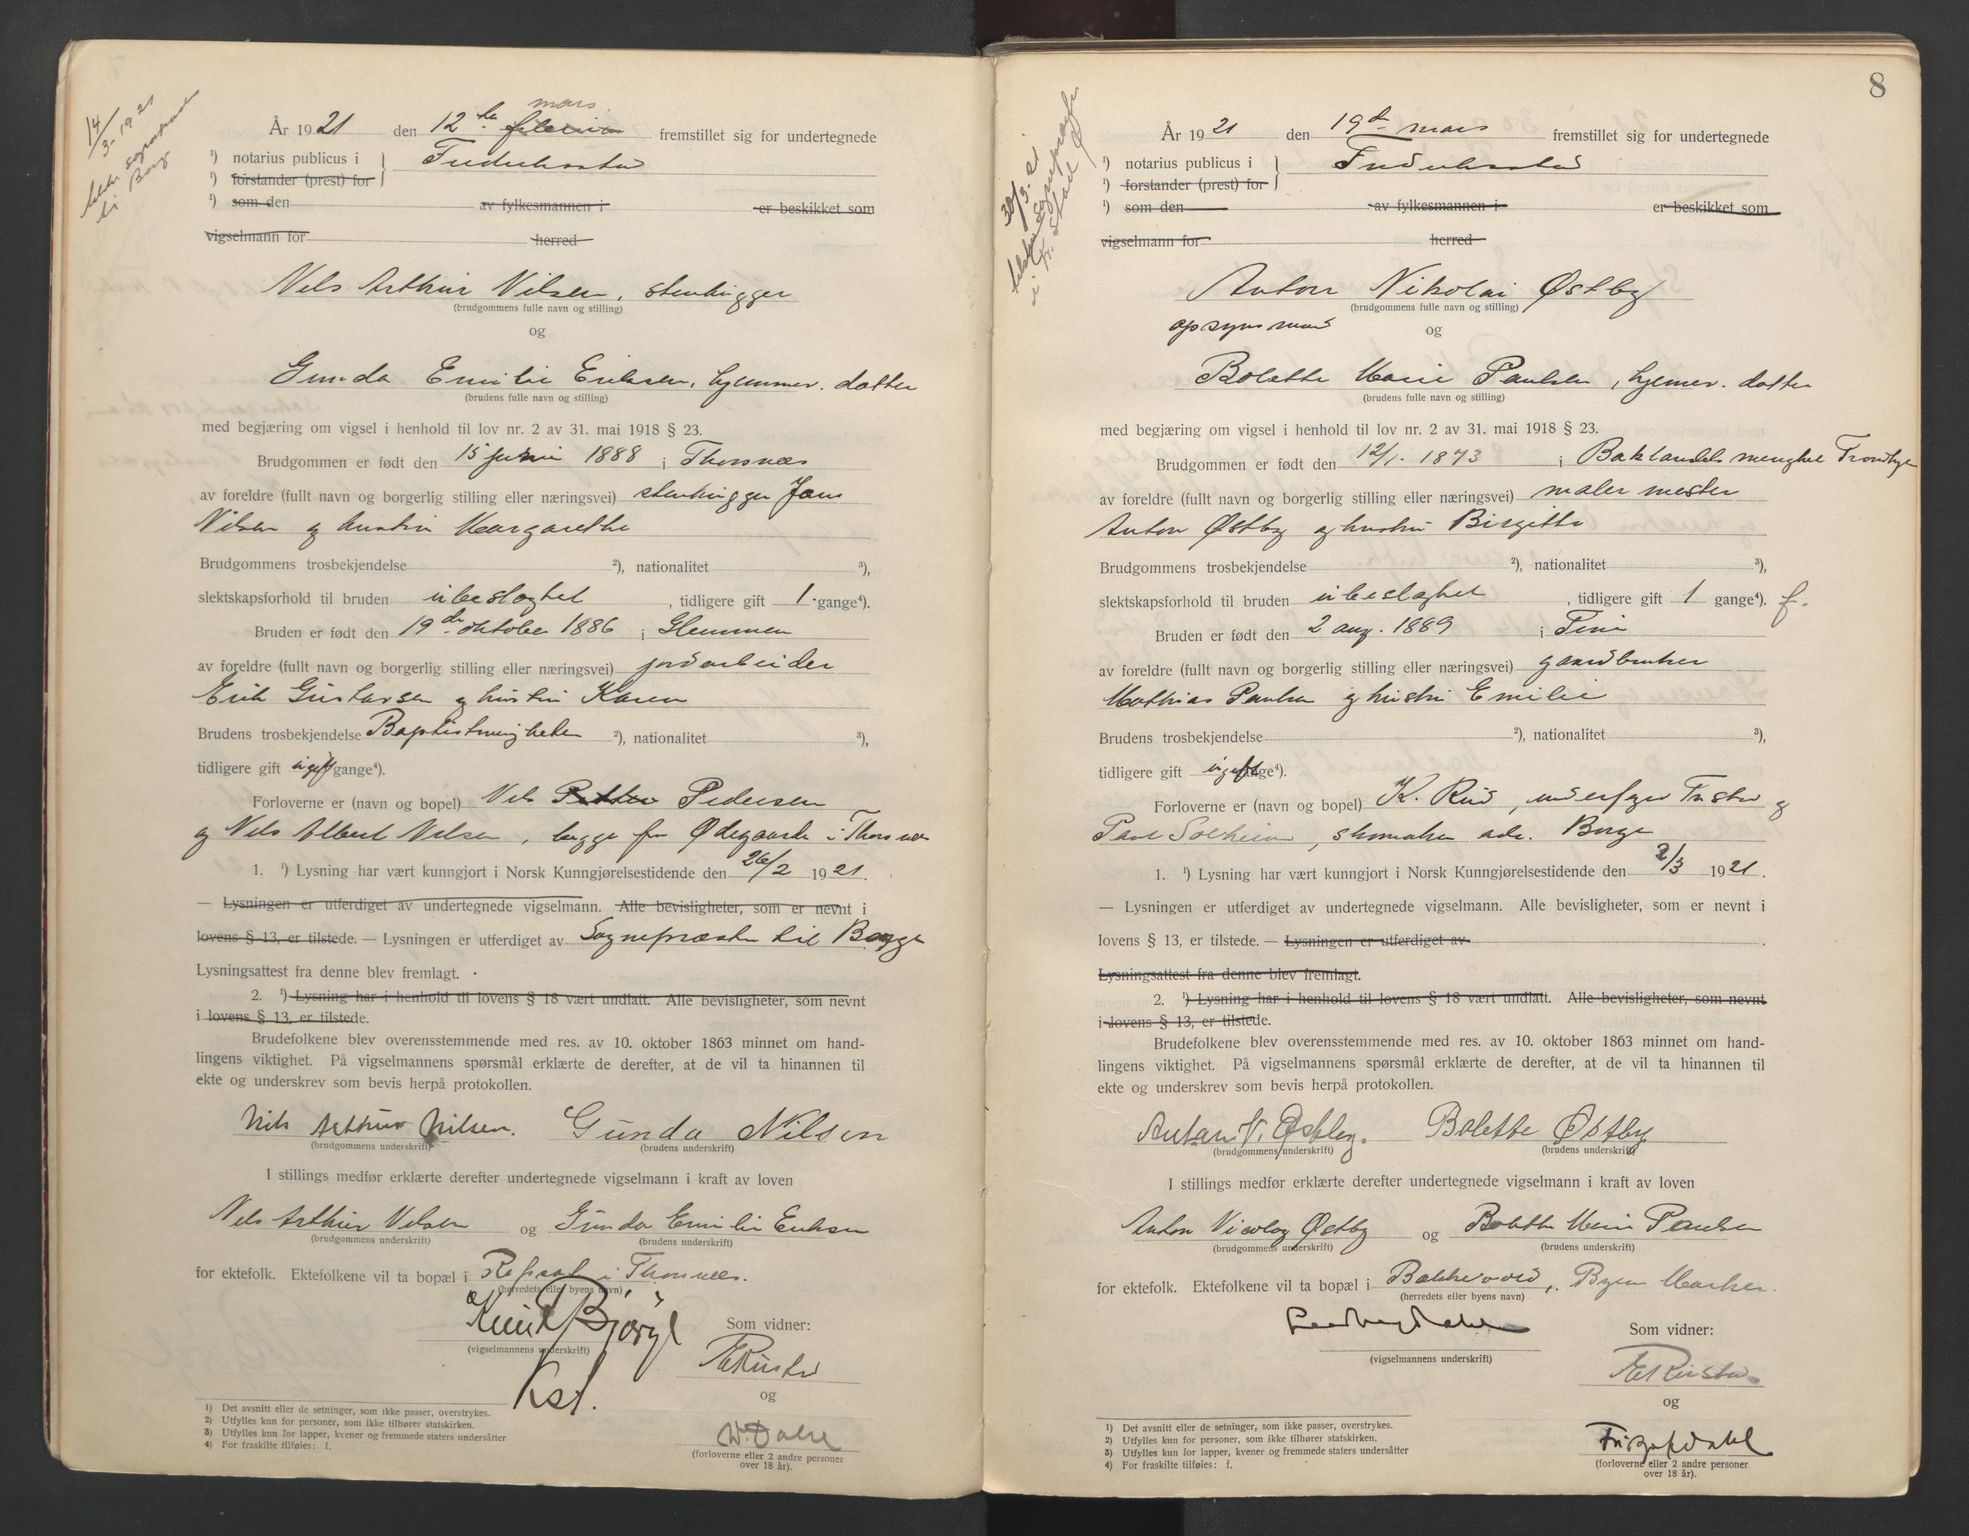 14/3-1921
År 1921 den 12te februar mars fremstillet sig for undertegnede
¹) notarius publicus i } Fredriksstad
¹) forstander (prest) for
¹) som den av fylkesmannen i er beskikket som
vigselmann for herred
Nils Arthur Nilsen, stenhugger
(brudgommens fulle navn og stilling)
og
Gunda Emilie Eriksen, hjemmev. datter
(brudens fulle navn og stilling)
med begjæring om vigsel i henhold til lov nr. 2 av 31. mai 1918 § 23.
Brudgommen er født den 15 juni 1888 i Thorsnæs
av foreldre (fullt navn og borgerlig stilling eller næringsvei) stenhugger Jens
Nilsen og hustru Margarethe
Brudgommens trosbekjendelse ²), nationalitet ³),
slektskapsforhold til bruden ubeslægtet, tidligere gift 1 gange⁴).
Bruden er født den 19de oktober 1886 i Glemmen
av foreldre (fullt navn og borgerlig stilling eller næringsvei) jordarbeider
Erik Gustavsen og hustru Karen
Brudens trosbekjendelse Baptistmenigheten ²), nationalitet ³),
tidligere gift ugift gange⁴).
Forloverne er (navn og bopel) Nils Petter Pedersen
og Nils Albert Nilsen, begge fra Ødegaard i Thorsnæs
1. ¹) Lysning har vært kunngjort i Norsk Kunngjørelsestidende den 26/2 1921.
— Lysningen er utferdiget av undertegnede vigselmann. Alle bevisligheter, som er nevnt i
lovens § 13, er tilstede. — Lysningen er utferdiget av Sognepræsten til Borge
Lysningsattest fra denne blev fremlagt.
2. ¹) Lysning har i henhold til lovens § 18 vært undlatt. Alle bevisligheter, som nevnt
i lovens § 13, er tilstede.
Brudefolkene blev overensstemmende med res. av 10. oktober 1863 minnet om hand-
lingens viktighet. På vigselmannens spørsmål erklærte de derefter, at de vil ta hinannen til
ekte og underskrev som bevis herpå protokollen.
Nils Arthur Nilsen. Gunda Nilsen
(brudgommens underskrift) (brudens underskrift)
I stillings medfør erklærte derefter undertegnede vigselmann i kraft av loven
Nils Arthur Nilsen og Gunda Emilie Eriksen
(brudgommens underskrift) (brudens underskrift)
for ektefolk. Ektefolkene vil ta bopæl i i Thorsnæs.
(herredets eller byens navn)
Knut Som vidner:
(vigselmannens underskrift)
Kst.
og
(forloverne eller 2 andre personer
over 18 år).
1) Det avsnitt eller de setninger, som ikke passer, overstrykes.
2) Utfylles kun for personer, som ikke tilhører statskirken.
3) Utfylles kun for lapper, kvener og fremmede staters undersåtter
4) For fraskilte tilføies: f.
8
30/3-21
År 1921 den 19de mars fremstillet sig for undertegnede
¹) notarius publicus i } Fredriksstad
¹) forstander (prest) for
¹) som den av fylkesmannen i er beskikket som
vigselmann for herred
Anton Nikolai Østby
(brudgommens fulle navn og stilling)
opsynsmand
og
Bolette Marie Paulsen, hjemmev. datter
(brudens fulle navn og stilling)
med begjæring om vigsel i henhold til lov nr. 2 av 31. mai 1918 § 23.
Brudgommen er født den 12/1. 1873 i Baklandets menighet Trondhjem
av foreldre (fullt navn og borgerlig stilling eller næringsvei) malermester
Anton Østby og hustru Birgitte
Brudgommens trosbekjendelse ²), nationalitet ³),
slektskapsforhold til bruden ubeslægtet, tidligere gift 1 gange⁴). f.
Bruden er født den 2 aug. 1889 i
av foreldre (fullt navn og borgerlig stilling eller næringsvei) gaardbruker
Mathias Paulsen og hustru Emilie
Brudens trosbekjendelse ²), nationalitet ³),
tidligere gift ugift gange⁴).
Forloverne er (navn og bopel) K. Rud, og
Paul Solheim, skomaker Borge
1. ¹) Lysning har vært kunngjort i Norsk Kunngjørelsestidende den 2/3 1921.
— Lysningen er utferdiget av undertegnede vigselmann. Alle bevisligheter, som er nevnt i
lovens § 13, er tilstede. — Lysningen er utferdiget av
Lysningsattest fra denne blev fremlagt.
2. ¹) Lysning har i henhold til lovens § 18 vært undlatt. Alle bevisligheter, som nevnt
i lovens § 13, er tilstede.
Brudefolkene blev overensstemmende med res. av 10. oktober 1863 minnet om hand-
lingens viktighet. På vigselmannens spørsmål erklærte de derefter, at de vil ta hinannen til
ekte og underskrev som bevis herpå protokollen.
Anton N. Østby. Bolette Østby
(brudgommens underskrift) (brudens underskrift)
I stillings medfør erklærte derefter undertegnede vigselmann i kraft av loven
Anton Nicolay Østby og Bolette Marie Paulsen
(brudgommens underskrift) (brudens underskrift)
for ektefolk. Ektefolkene vil ta bopæl i
(herredets eller byens navn)
Som vidner:
(vigselmannens underskrift)
og
(forloverne eller 2 andre personer
over 18 år).
1) Det avsnitt eller de setninger, som ikke passer, overstrykes.
2) Utfylles kun for personer, som ikke tilhører statskirken.
3) Utfylles kun for lapper, kvener og fremmede staters undersåtter
4) For fraskilte tilføies: f.